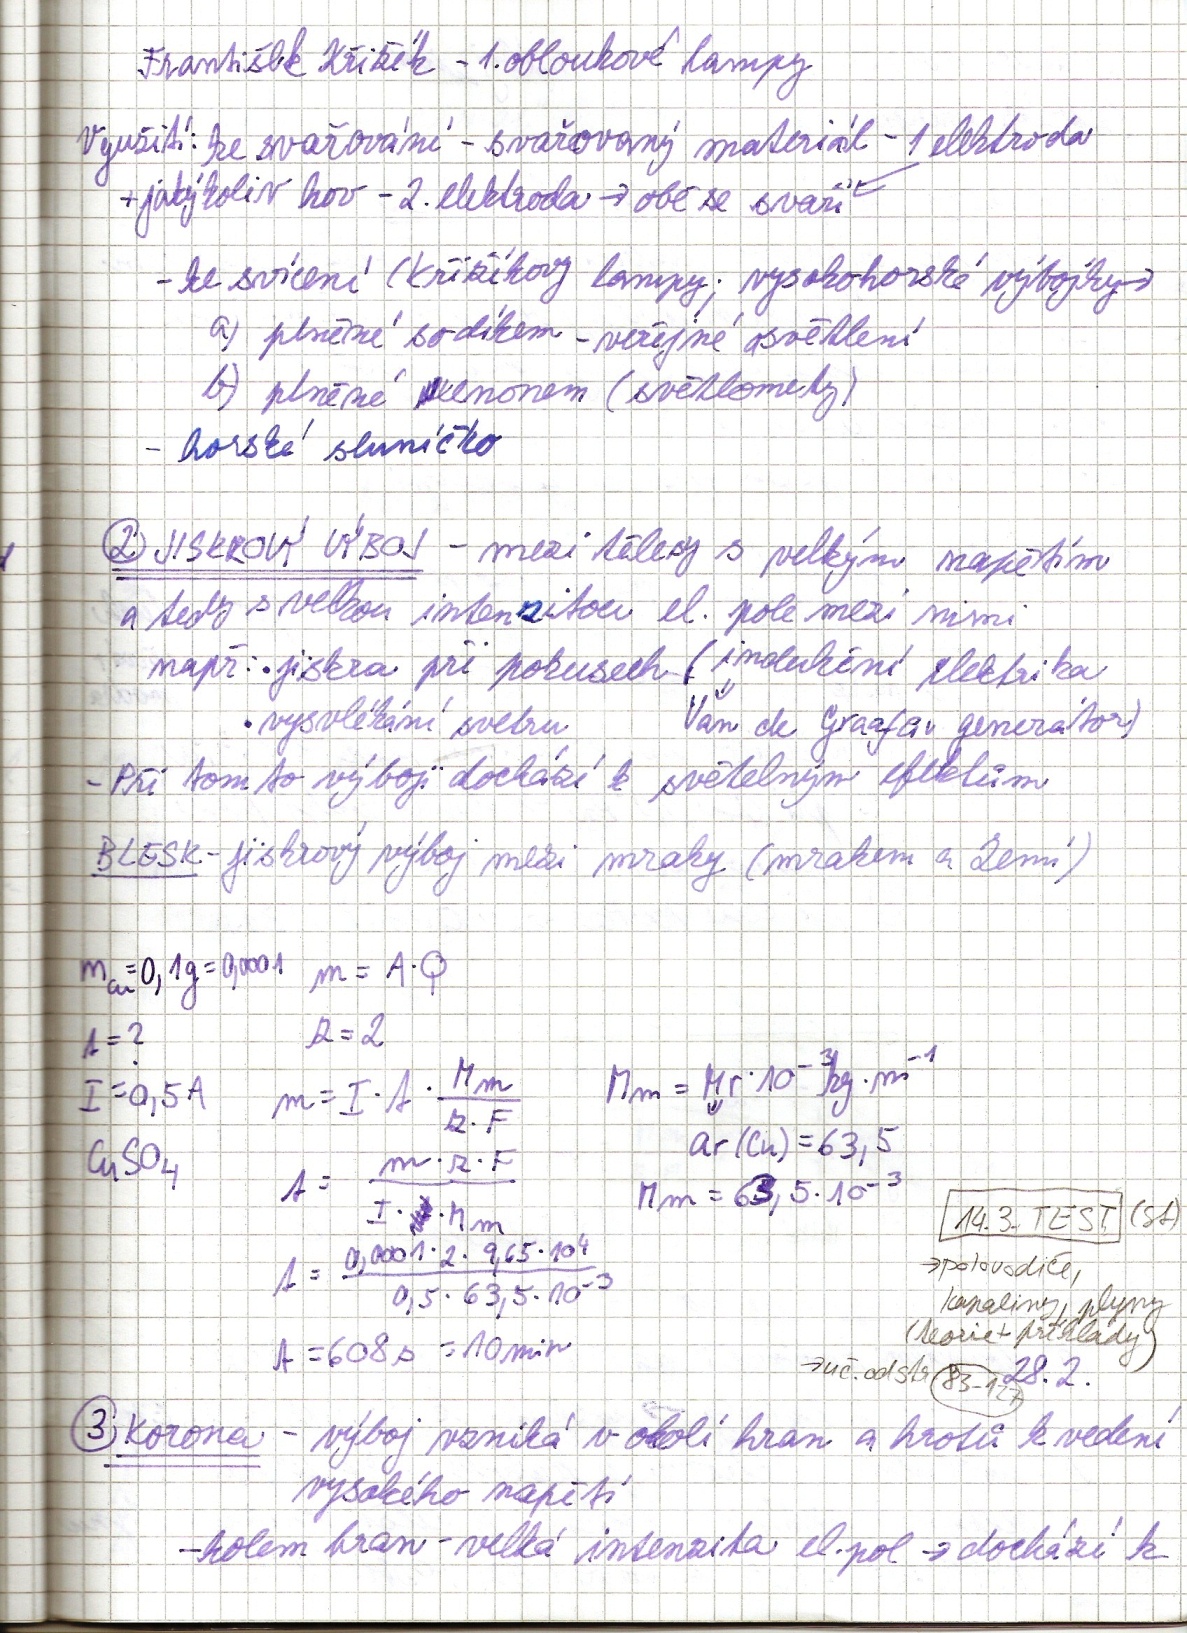 František Křižík - 1. obloukové lampy
Využití: ke svařování - svařovaný materiál - 1 elektroda
+ jakýkoliv kov - 2. elektroda → obě se svaří
- ke svícení (Křižíkovy lampy; vysokohorské výbojky →
a) plněné sodíkem - veřejné osvětlení
b) plněné xenonem (světlomety)
- horské sluníčko
② JISKROVÝ VÝBOJ - mezi tělesy s velkým napětím
a tedy s velkou intenzitou el. pole mezi nimi
např: • jiskra při pokusech (indukční elektrika
• vysvlékání svetru Van de Graafův generátor)
- Při tomto výboji dochází k světelným efektům
BLESK - jiskrový výboj mezi mraky (mrakem a Zemí)
m_Cu = 0,1g = 0,0001 m = A·Q
t = ? z = 2
I = 0,5A m = I·t· Mm / z·F Mm = Mr·10⁻³ kg·m⁻¹
CuSO₄ t = m·z·F / I·Mm ar(Cu) = 63,5
Mm = 63,5·10⁻³
t = 0,0001·2·9,65·10⁴ / 0,5·63,5·10⁻³
t = 608 s = 10 min
14.3. TEST (St)
→ polovodiče,
kapaliny, plyny
(teorie + příklady)
→ uč. od str. 83-127 28.2.
③ Korona - výboj vzniká v okolí hran a hrotů k vedení
vysokého napětí
- kolem hran - velká intenzita el. pol → dochází k